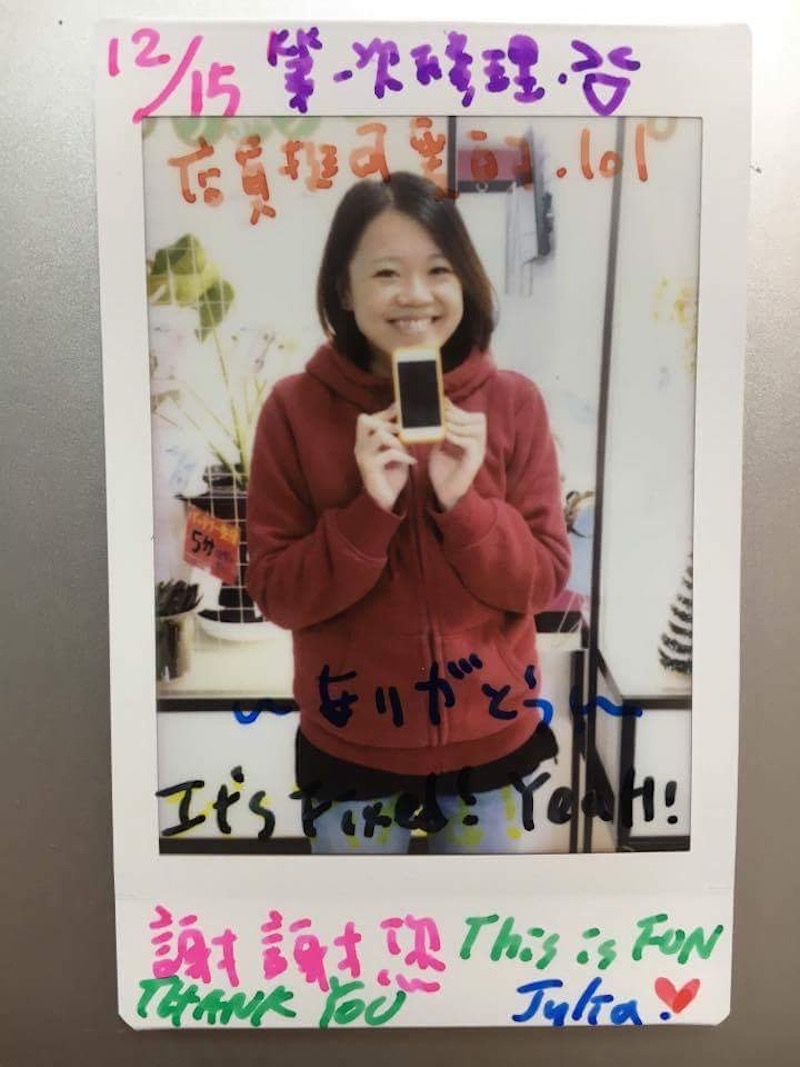 12/15 第一次修理·谷
店員挺可愛的.lol
バッテリー
5分
~ありがとう~
It's Fixed! YeaH!
謝謝您 This is FUN
THANK YOU Julia.